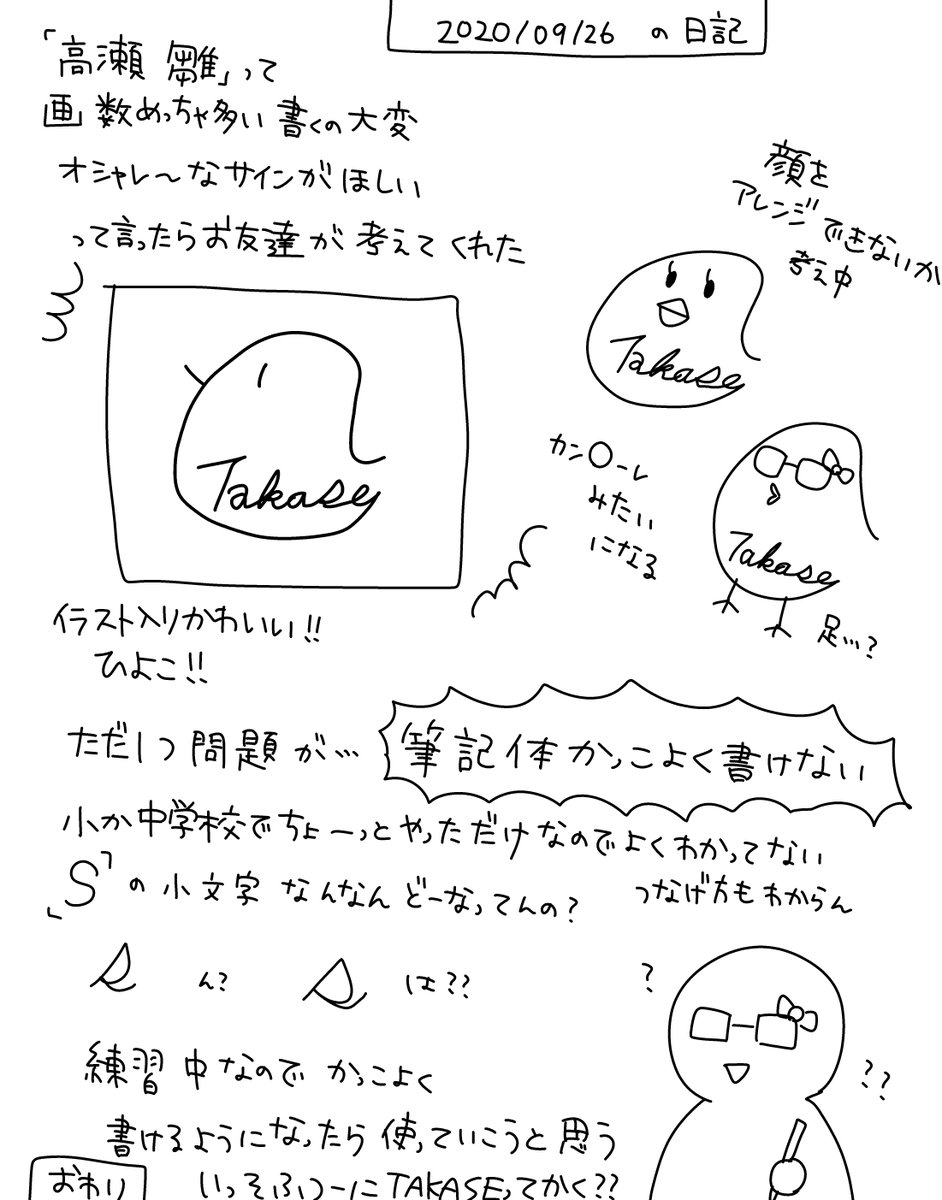 2020/09/26 の日記
「高瀬 雛」って
画数めっちゃ多い書くの大変
オシャレ〜なサインがほしい
って言ったらお友達が考えてくれた
Takase
イラスト入りかわいい!!
ひよこ!!
顔を
アレンジできないか
考え中
Takase
カン〇ーレ
みたい
になる
Takase
足…?
ただ1つ問題が…
筆記体かっこよく書けない
小か中学校でちょーっとやっただけなのでよくわかってない
つなげ方もわからん
「S」の小文字なんなんどーなってんの?
s ん? s は??
? ??
練習中なのでかっこよく
書けるようになったら使っていこうと思う
いっそふつーにTAKASEってかく??
おわり